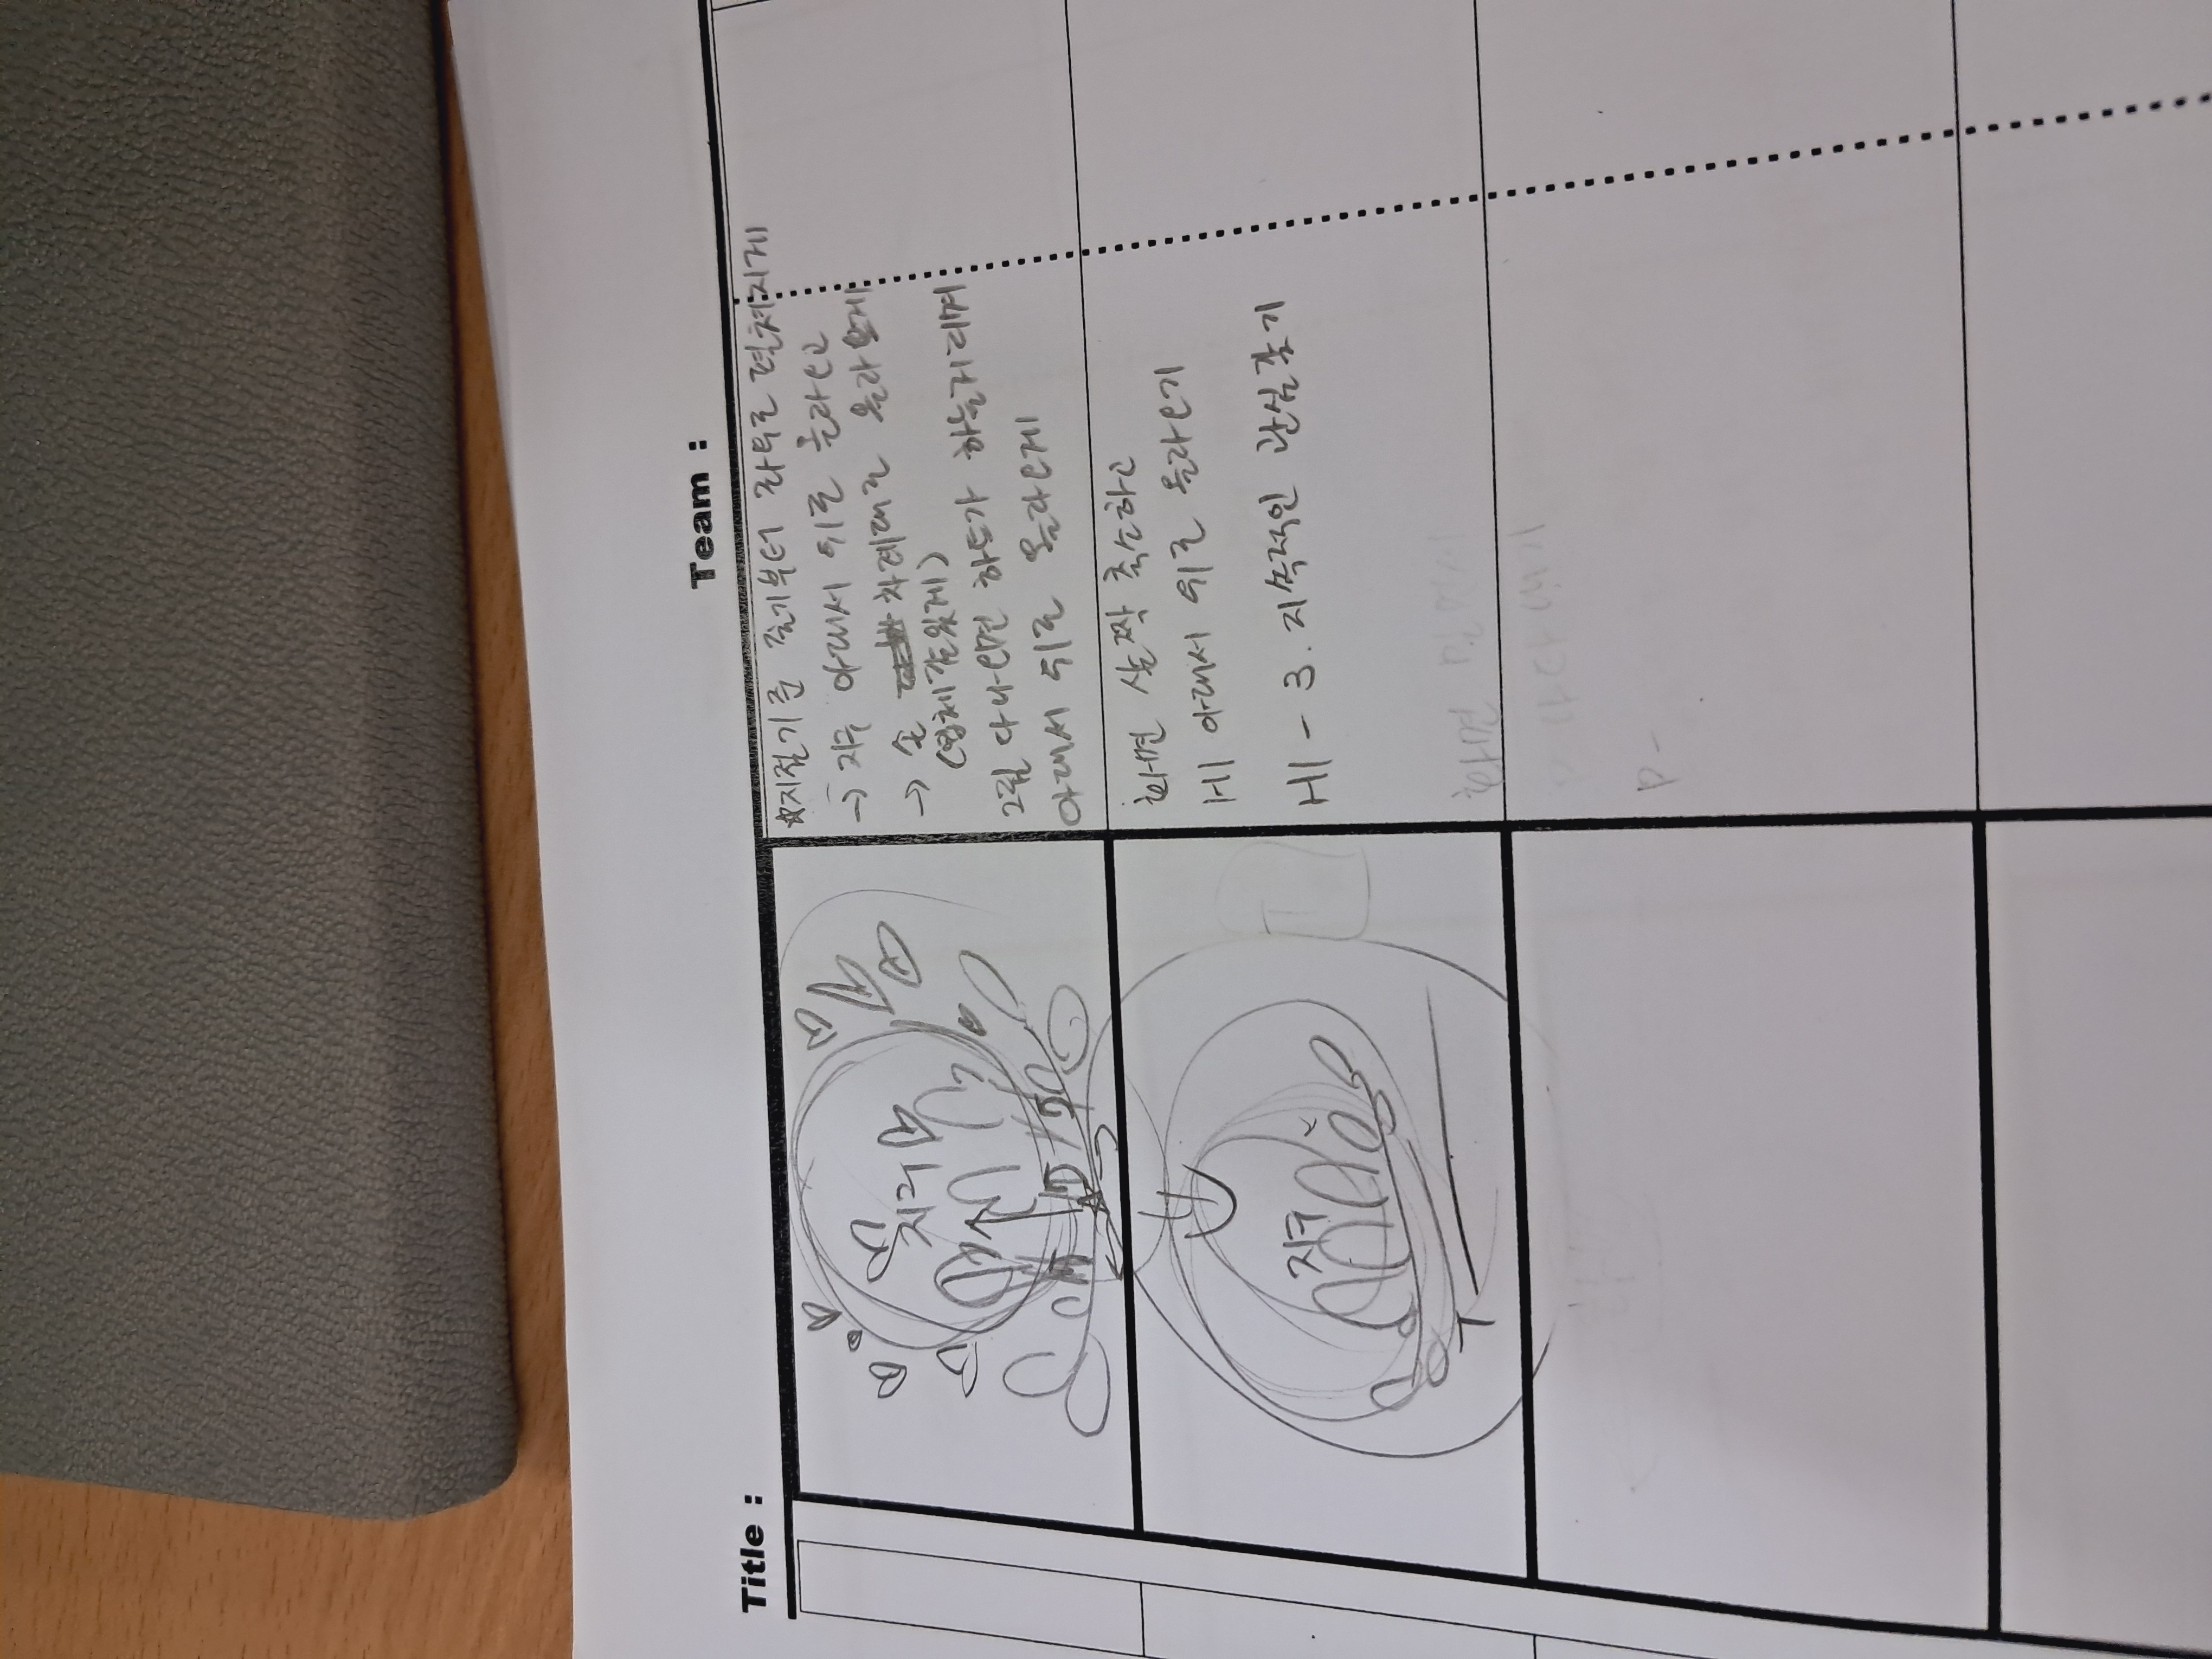 Title :
Team :
☆지점기준 줄기부터 좌우로 펼쳐지게
→ 지구 아래서 위로 올라오고
→ 손 차례대로 올라오게
(입체감있게)
그림 다 나오면 하트가 하늘거리며
아래서 위로 올라오게
지구
화면 살짝 축소하고
HI 아래서 위로 올라오기
HI - 3. 지속적인 관심갖기
지구
T
화면
P -